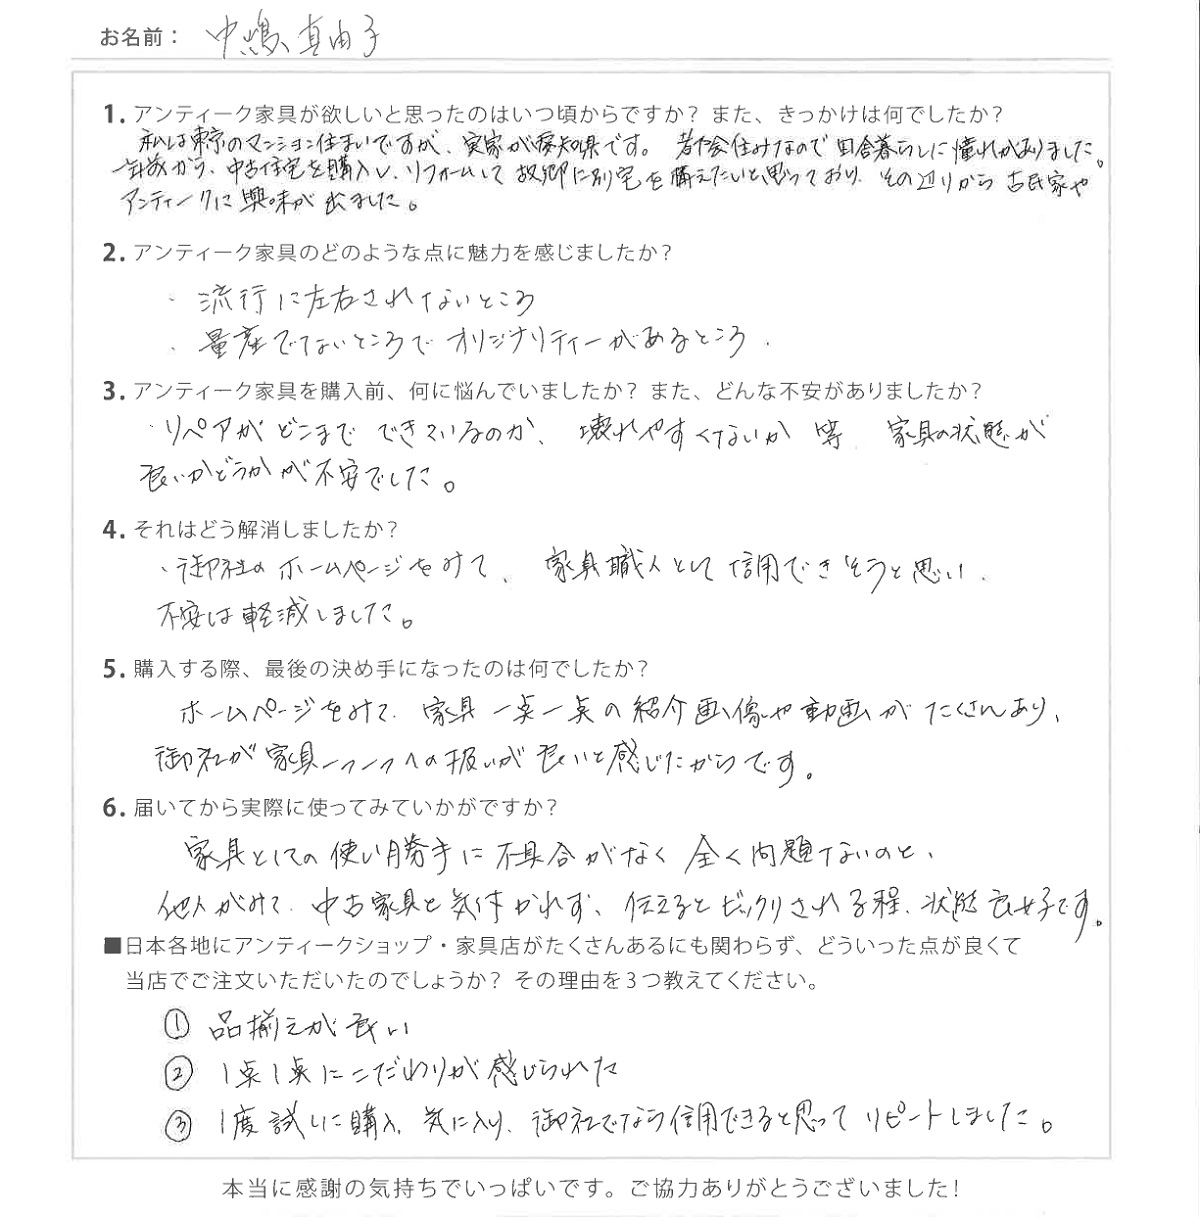 お名前： 中嶋 真由子
1. アンティーク家具が欲しいと思ったのはいつ頃からですか？ また、きっかけは何でしたか？
私は東京のマンション住まいですが、実家が愛知県です。都会住みなので田舎暮らしに憧れがありました。
年前から、中古住宅を購入し、リフォームして故郷に別宅を構えたいと思っており、その辺りから古民家や
アンティークに興味が出ました。
2. アンティーク家具のどのような点に魅力を感じましたか？
・流行に左右されないところ
・量産でないところでオリジナリティーがあるところ.
3. アンティーク家具を購入前、何に悩んでいましたか？ また、どんな不安がありましたか？
・リペアがどこまでできているのか、壊れやすくないか等、家具の状態が
良いかどうかが不安でした。
4. それはどう解消しましたか？
・御社のホームページをみて、家具職人として信用できそうと思い、
不安は軽減しました。
5. 購入する際、最後の決め手になったのは何でしたか？
ホームページをみて、家具一点一点の紹介画像や動画がたくさんあり、
御社が家具一つ一つへの扱いが良いと感じたからです。
6. 届いてから実際に使ってみていかがですか？
家具としての使い勝手に不具合がなく全く問題ないのと、
他人がみて、中古家具と気付かれず、伝えるとビックリされる程、状態良好です。
■日本各地にアンティークショップ・家具店がたくさんあるにも関わらず、どういった点が良くて
当店でご注文いただいたのでしょうか？ その理由を3つ教えてください。
① 品揃えが良い
② 1点1点にこだわりが感じられた
③ 1度試しに購入、気に入り、御社でなら信用できると思ってリピートしました。
本当に感謝の気持ちでいっぱいです。ご協力ありがとうございました！